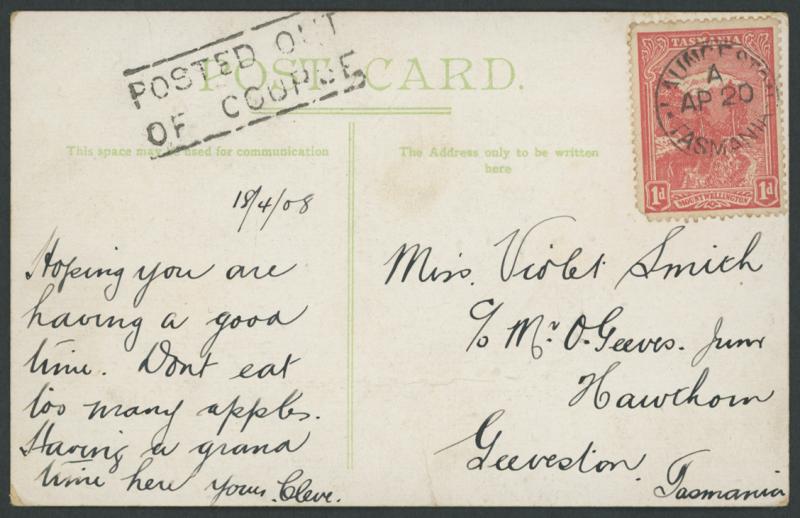 POSTED OUT
OF COURSE
POST CARD.
This space may be used for communication
The Address only to be written
here
TASMANIA
LAUNCESTON
A
AP 20
TASMANIA
1d
MOUNT WELLINGTON
1d
18/4/08
Hoping you are
having a good
time. Dont eat
too many apples.
Having a grand
time here yours. Cleve.
Miss. Violet Smith
c/o Mr. O. Geeves. Junr
Hawthorn
Geeveston.
Tasmania